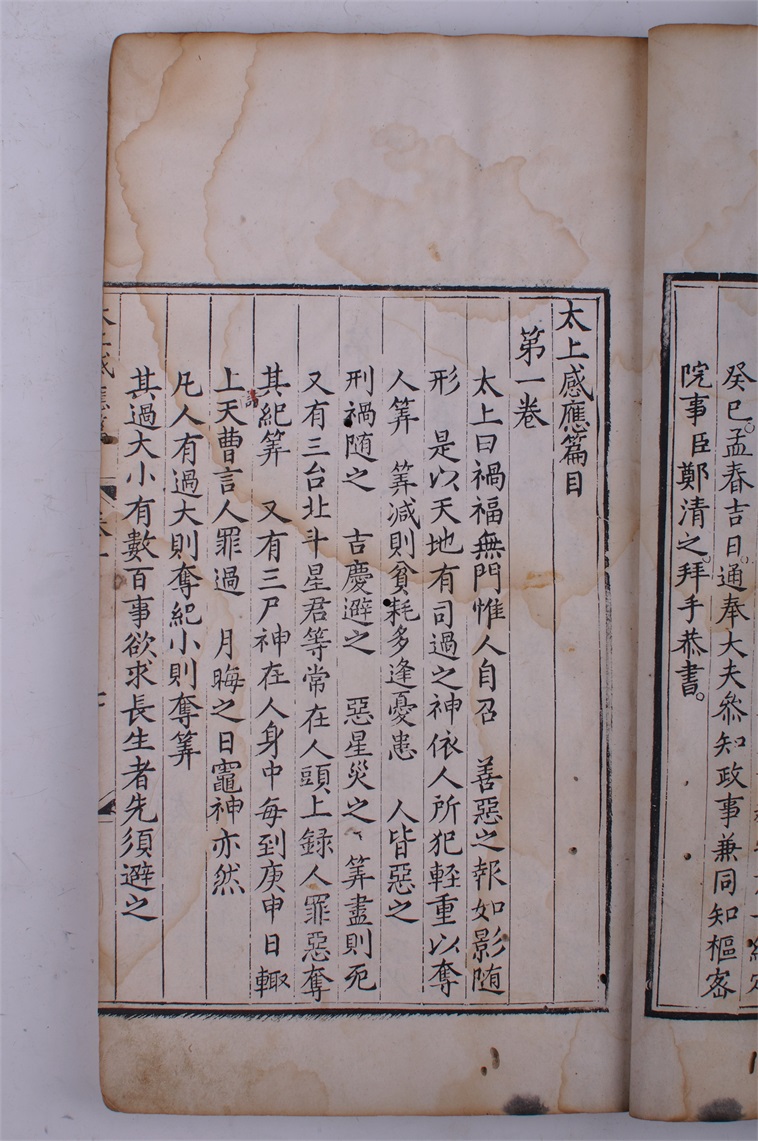 癸巳孟春吉日通奉大夫叅知政事兼同知樞密
院事臣鄭清之拜手恭書
太上感應篇目
第一卷
太上曰禍福無門惟人自召 善惡之報如影隨
形 是以天地有司過之神依人所犯輕重以奪
人筭 筭減則貧耗多逢憂患 人皆惡之
刑禍随之 吉慶避之 惡星災之 筭盡則死
又有三台北斗星君等常在人頭上録人罪惡奪
其紀筭 又有三尸神在人身中每到庚申日輙
上天曹言人罪過 月晦之日竈神亦然
凡人有過大則奪紀小則奪筭
其過大小有數百事欲求長生者先須避之